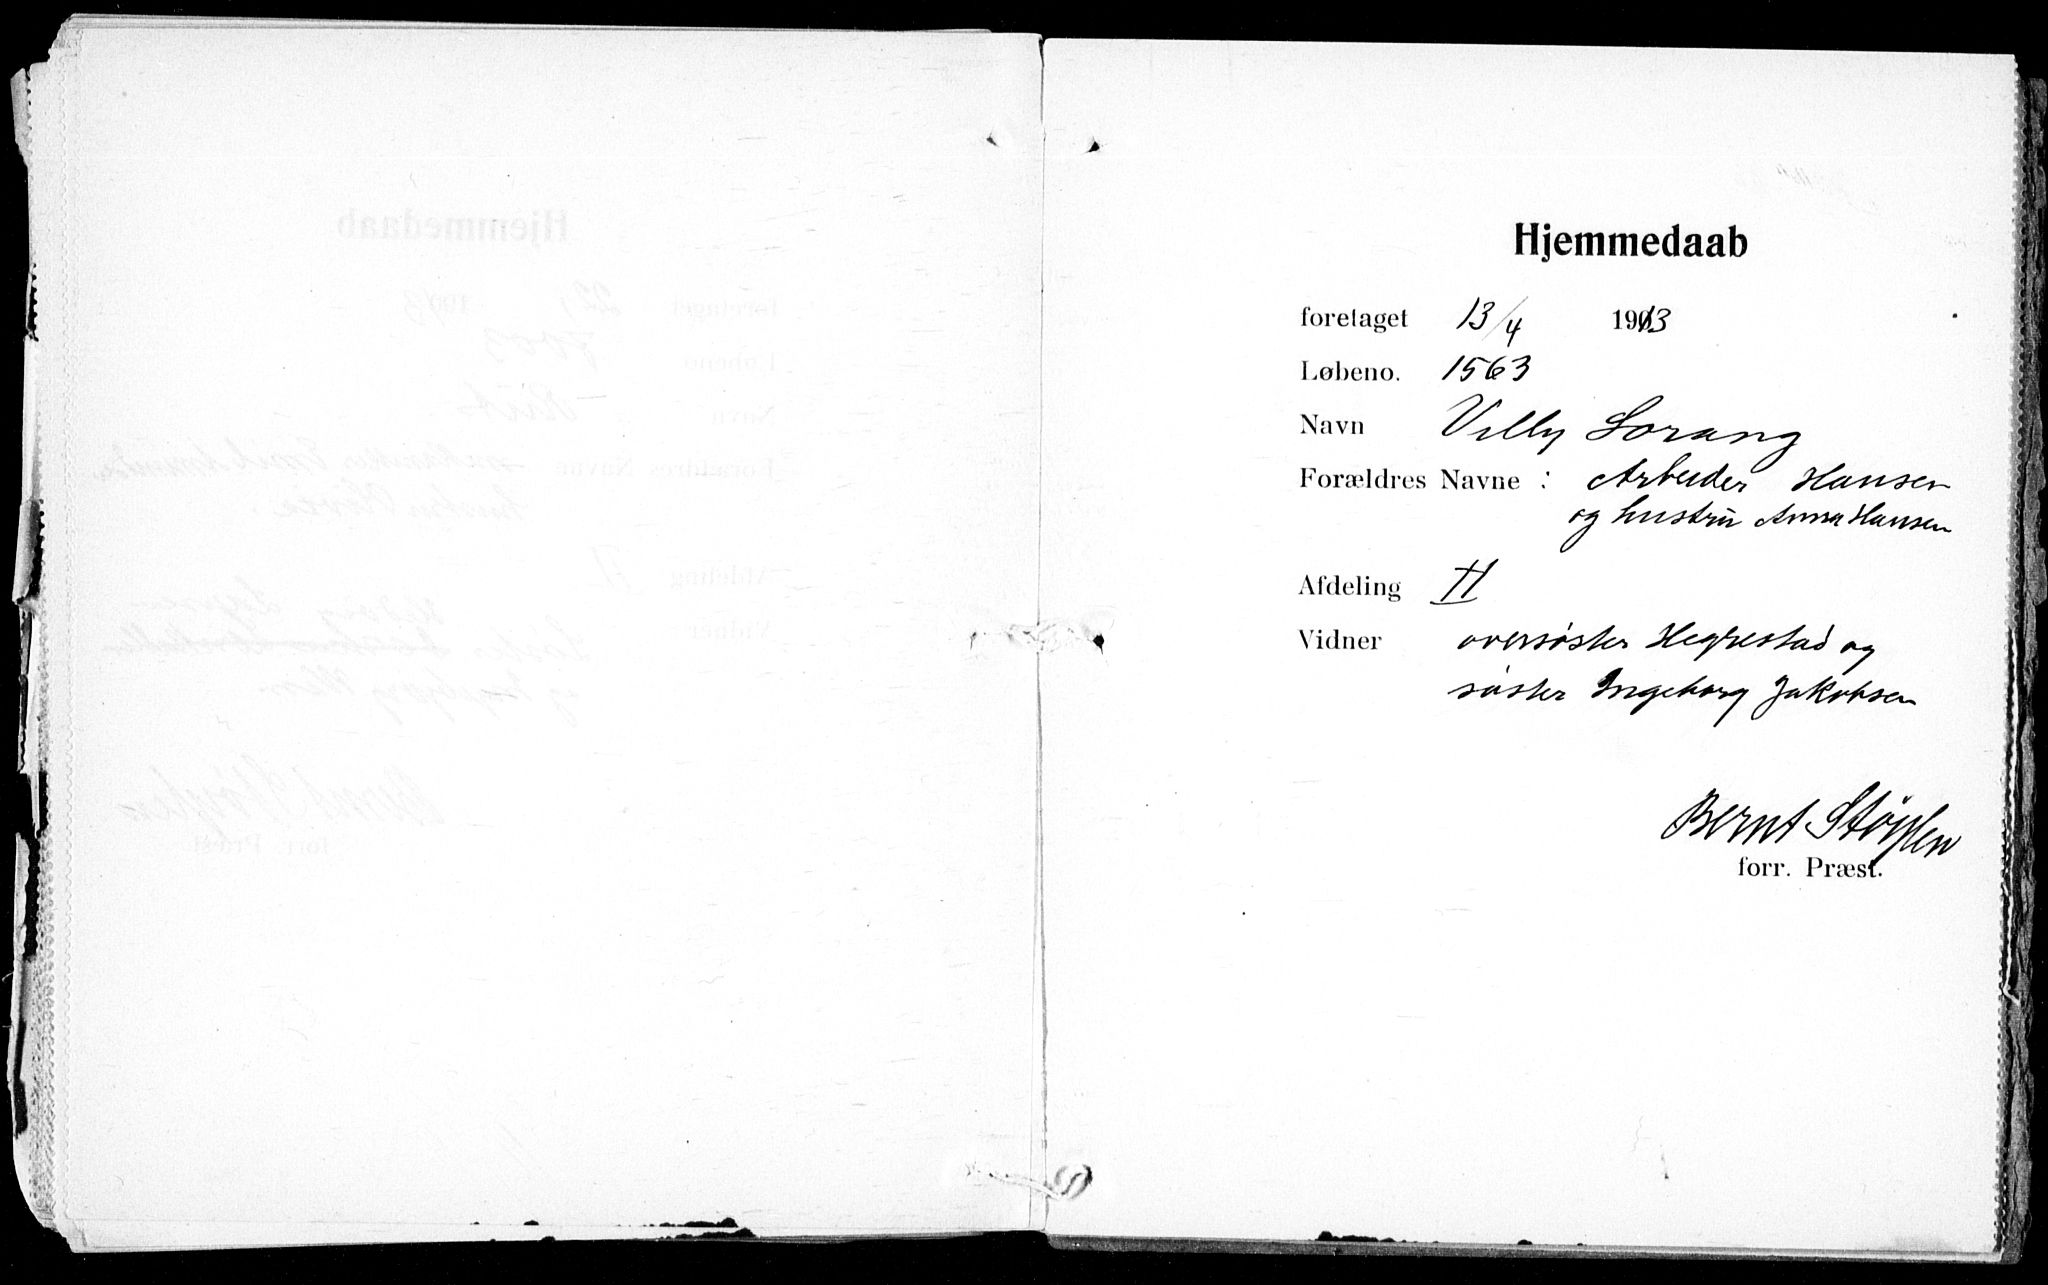 Hjemmedaab
foretaget 13/4 1913
Løbeno. 1563
Navn Villy Lorang
Forældres Navne : Arbeider Hansen
og hustru Anna Hansen
Afdeling II
Vidner oversøster Hegrestad og
søster Ingeborg Jakobsen
Bernt Støylen
forr. Præst.